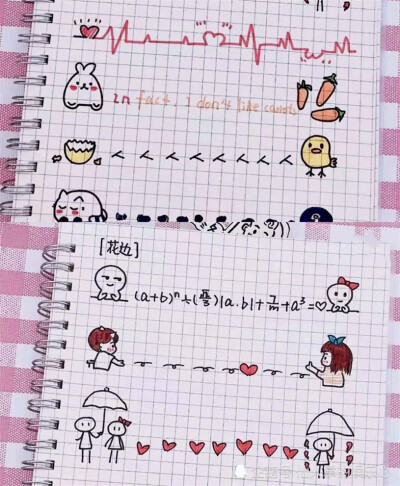 In fact, I don't like carrots
[花边]
(a+b)ⁿ÷(π/3)|a.b|+7/m+a³=♡